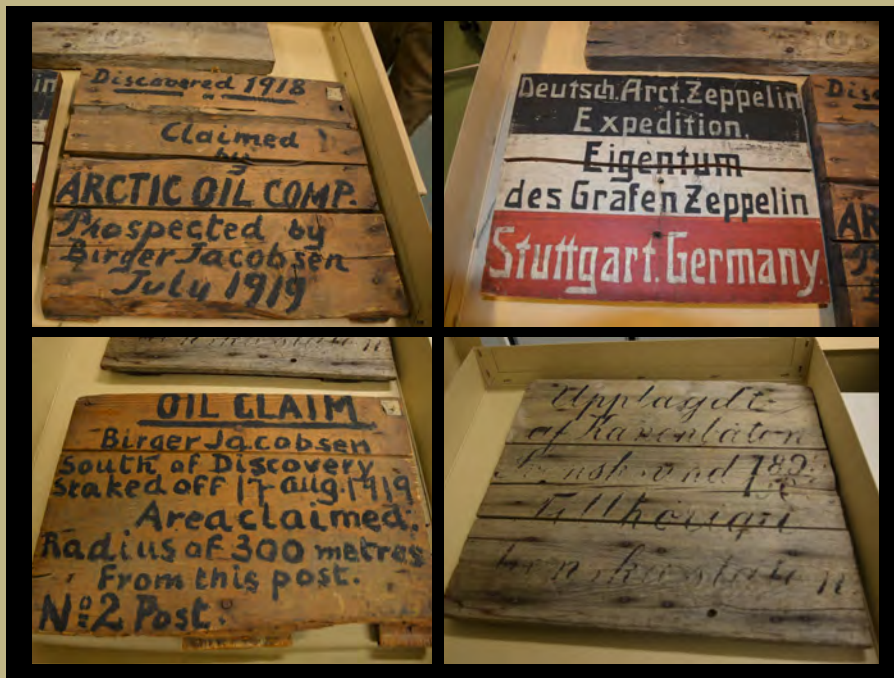 Discovered 1918
Claimed
by
ARCTIC OIL COMP.
Prospected by
Birger Jacobsen
July 1919
Deutsch.Arct.Zeppelin
Expedition.
Eigentum
des Grafen Zeppelin
Stuttgart.Germany.
OIL CLAIM
Birger Jacobsen
South of Discovery
staked off 17 aug.1919
Area claimed:
Radius of 300 metres
From this post.
No 2 Post.
Upplagdt
af Kanonbåten
Svensksund
Tillhörigt
Svenska staten